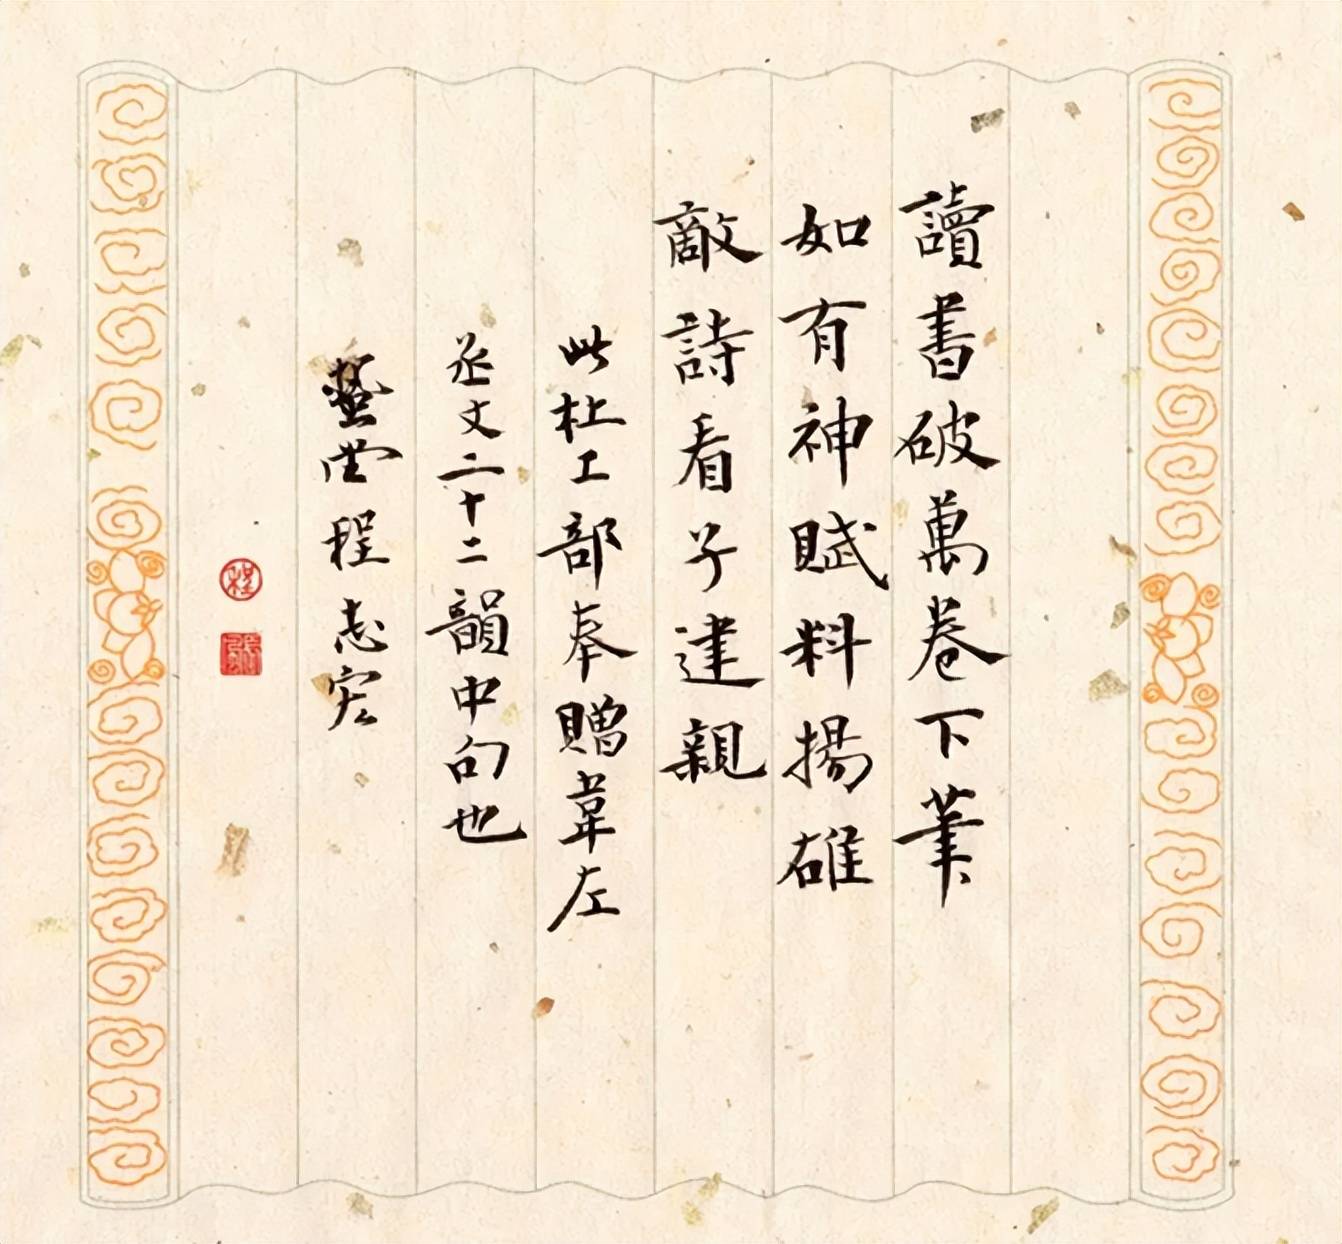 讀書破萬卷下筆
如有神賦料揚雄
敵詩看子建親
此杜工部奉贈韋左
丞丈二十二韻中句也
藝興程志宏
程